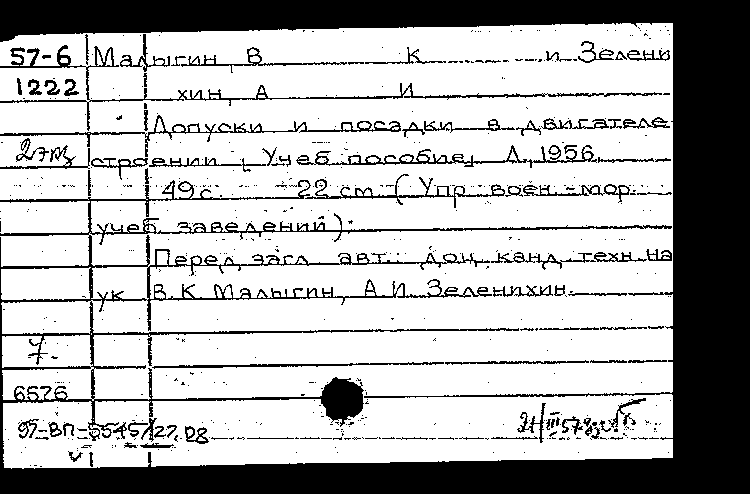 57-6 Малыгин, В К и Зелени
1222 хин, А И
Допуски и посадки в двигателе
2 экз строении [Учеб пособие] Л., 1956.
49 с. 22 см (Упр воен.-мор.
учеб заведений).
Перед загл авт. доц. канд. техн. на
ук В.К. Малыгин, А.И. Зеленихин.
7.
6576
97-ВП-5545/27.08
21/III 57